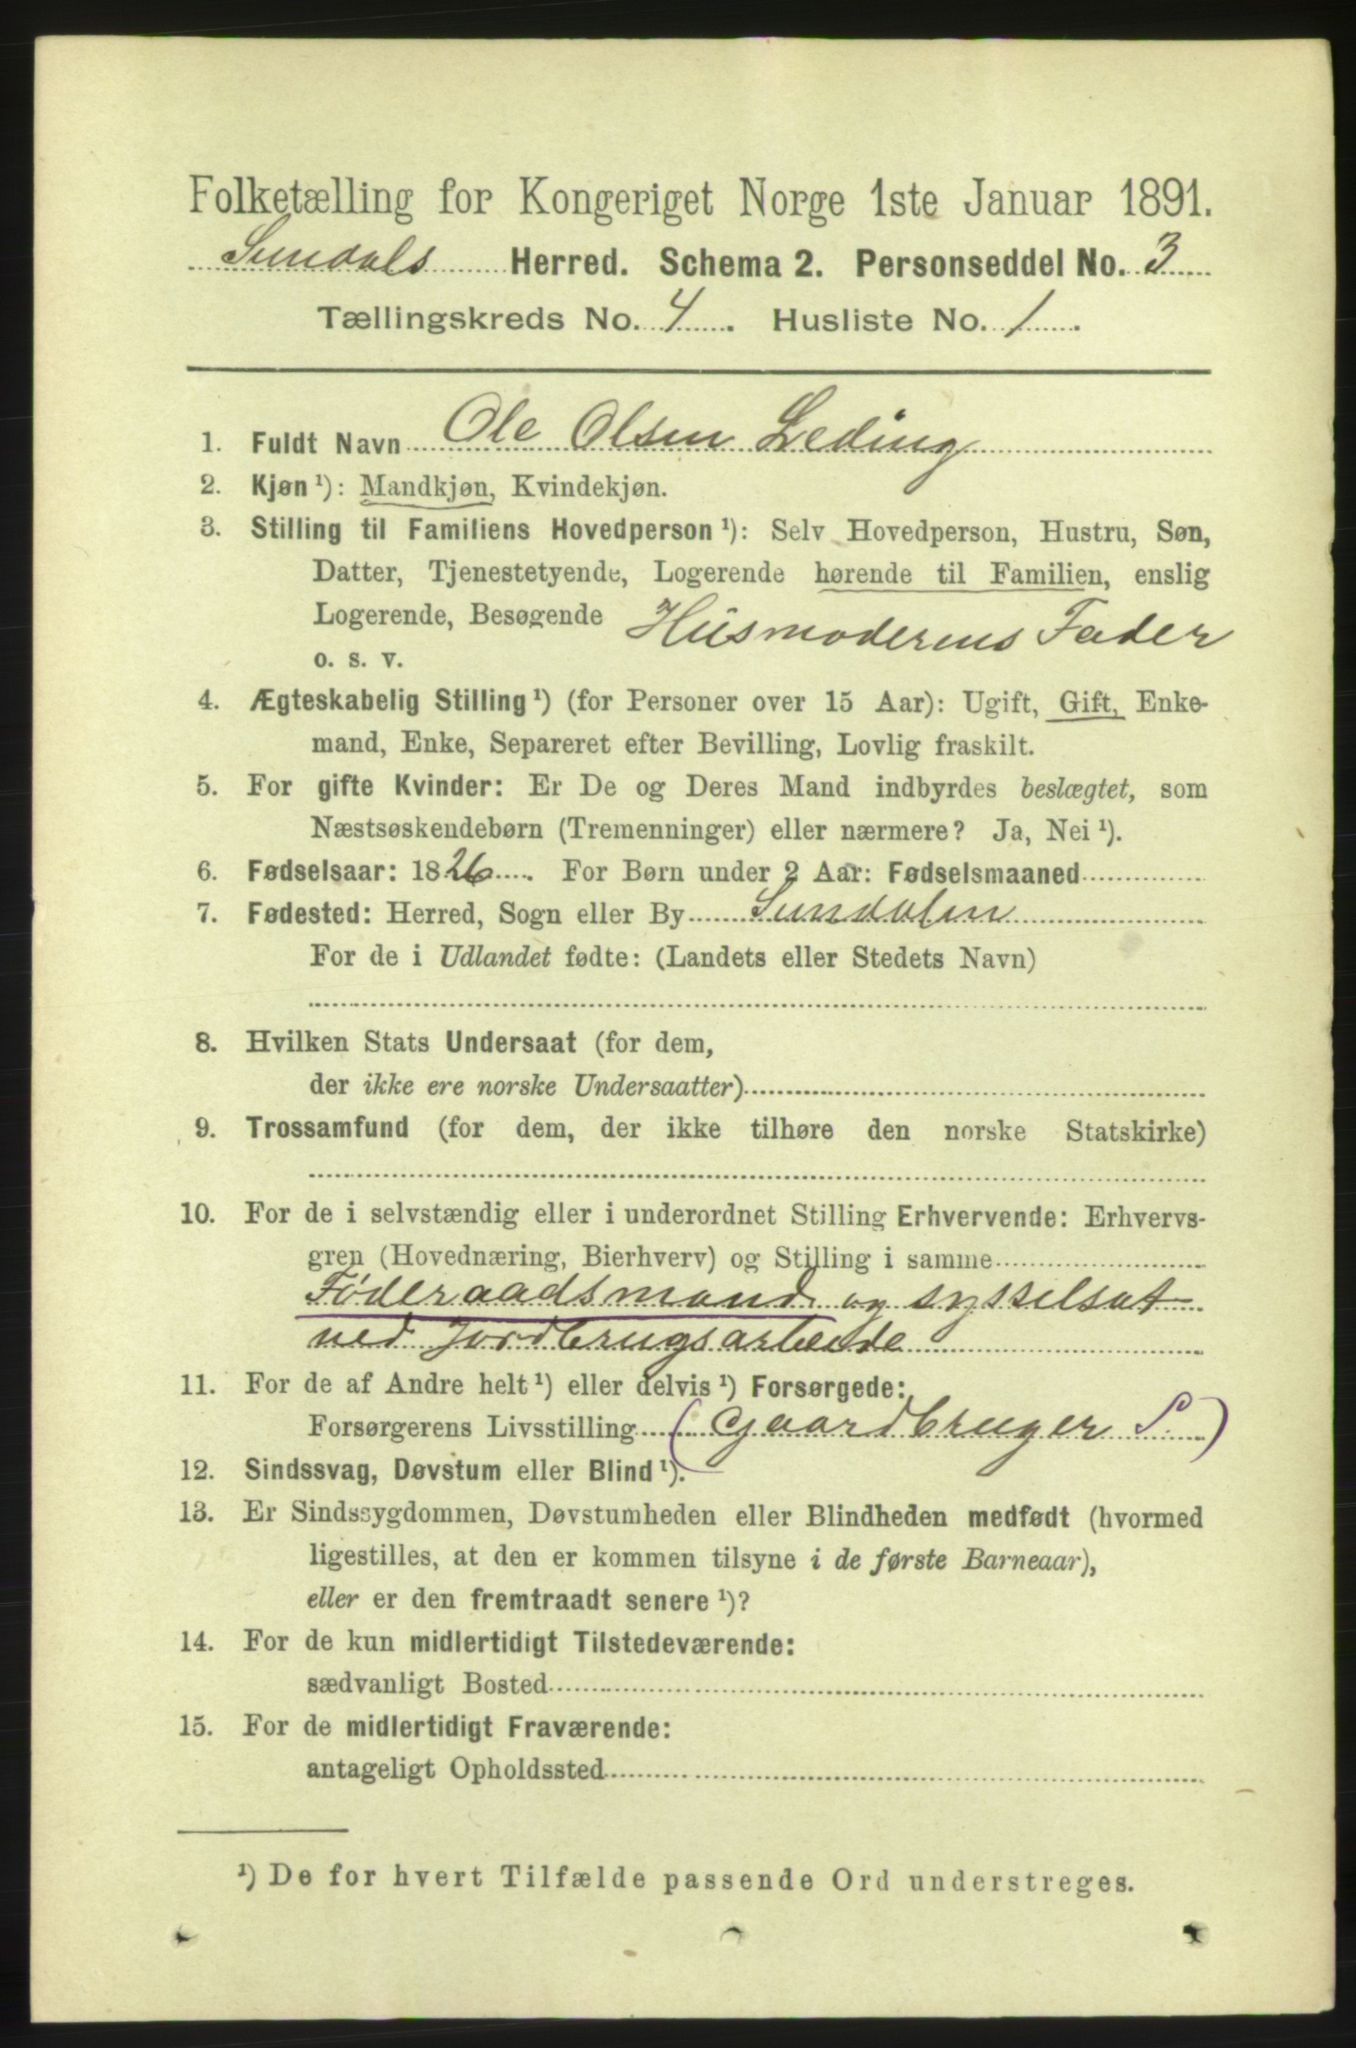 Folketælling for Kongeriget Norge 1ste Januar 1891.
Sundals Herred. Schema 2. Personseddel No. 3
Tællingskreds No. 4. Husliste No. 1.
1. Fuldt Navn Ole Olsen Leding
2. Kjøn ¹): Mandkjøn, Kvindekjøn.
3. Stilling til Familiens Hovedperson ¹): Selv Hovedperson, Hustru, Søn,
Datter, Tjenestetyende, Logerende hørende til Familien, enslig
Logerende, Besøgende Husmoderens Fader
o. s. v.
4. Ægteskabelig Stilling ¹) (for Personer over 15 Aar): Ugift, Gift, Enke-
mand, Enke, Separeret efter Bevilling, Lovlig fraskilt.
5. For gifte Kvinder: Er De og Deres Mand indbyrdes beslægtet, som
Næstsøskendebørn (Tremenninger) eller nærmere? Ja, Nei ¹).
6. Fødselsaar: 1826. For Børn under 2 Aar: Fødselsmaaned
7. Fødested: Herred, Sogn eller By Sundalen
For de i Udlandet fødte: (Landets eller Stedets Navn)
8. Hvilken Stats Undersaat (for dem,
der ikke ere norske Undersaatter)
9. Trossamfund (for dem, der ikke tilhøre den norske Statskirke)
10. For de i selvstændig eller i underordnet Stilling Erhvervende: Erhvervs-
gren (Hovednæring, Bierhverv) og Stilling i samme
Føderaadsmand og sysselsat
med Jordbrugsarbeide
11. For de af Andre helt ¹) eller delvis ¹) Forsørgede:
Forsørgerens Livsstilling (Gaardbruger S.)
12. Sindssvag, Døvstum eller Blind ¹).
13. Er Sindssygdommen, Døvstumheden eller Blindheden medfødt (hvormed
ligestilles, at den er kommen tilsyne i de første Barneaar),
eller er den fremtraadt senere ¹)?
14. For de kun midlertidigt Tilstedeværende:
sædvanligt Bosted
15. For de midlertidigt Fraværende:
antageligt Opholdssted
¹) De for hvert Tilfælde passende Ord understreges.